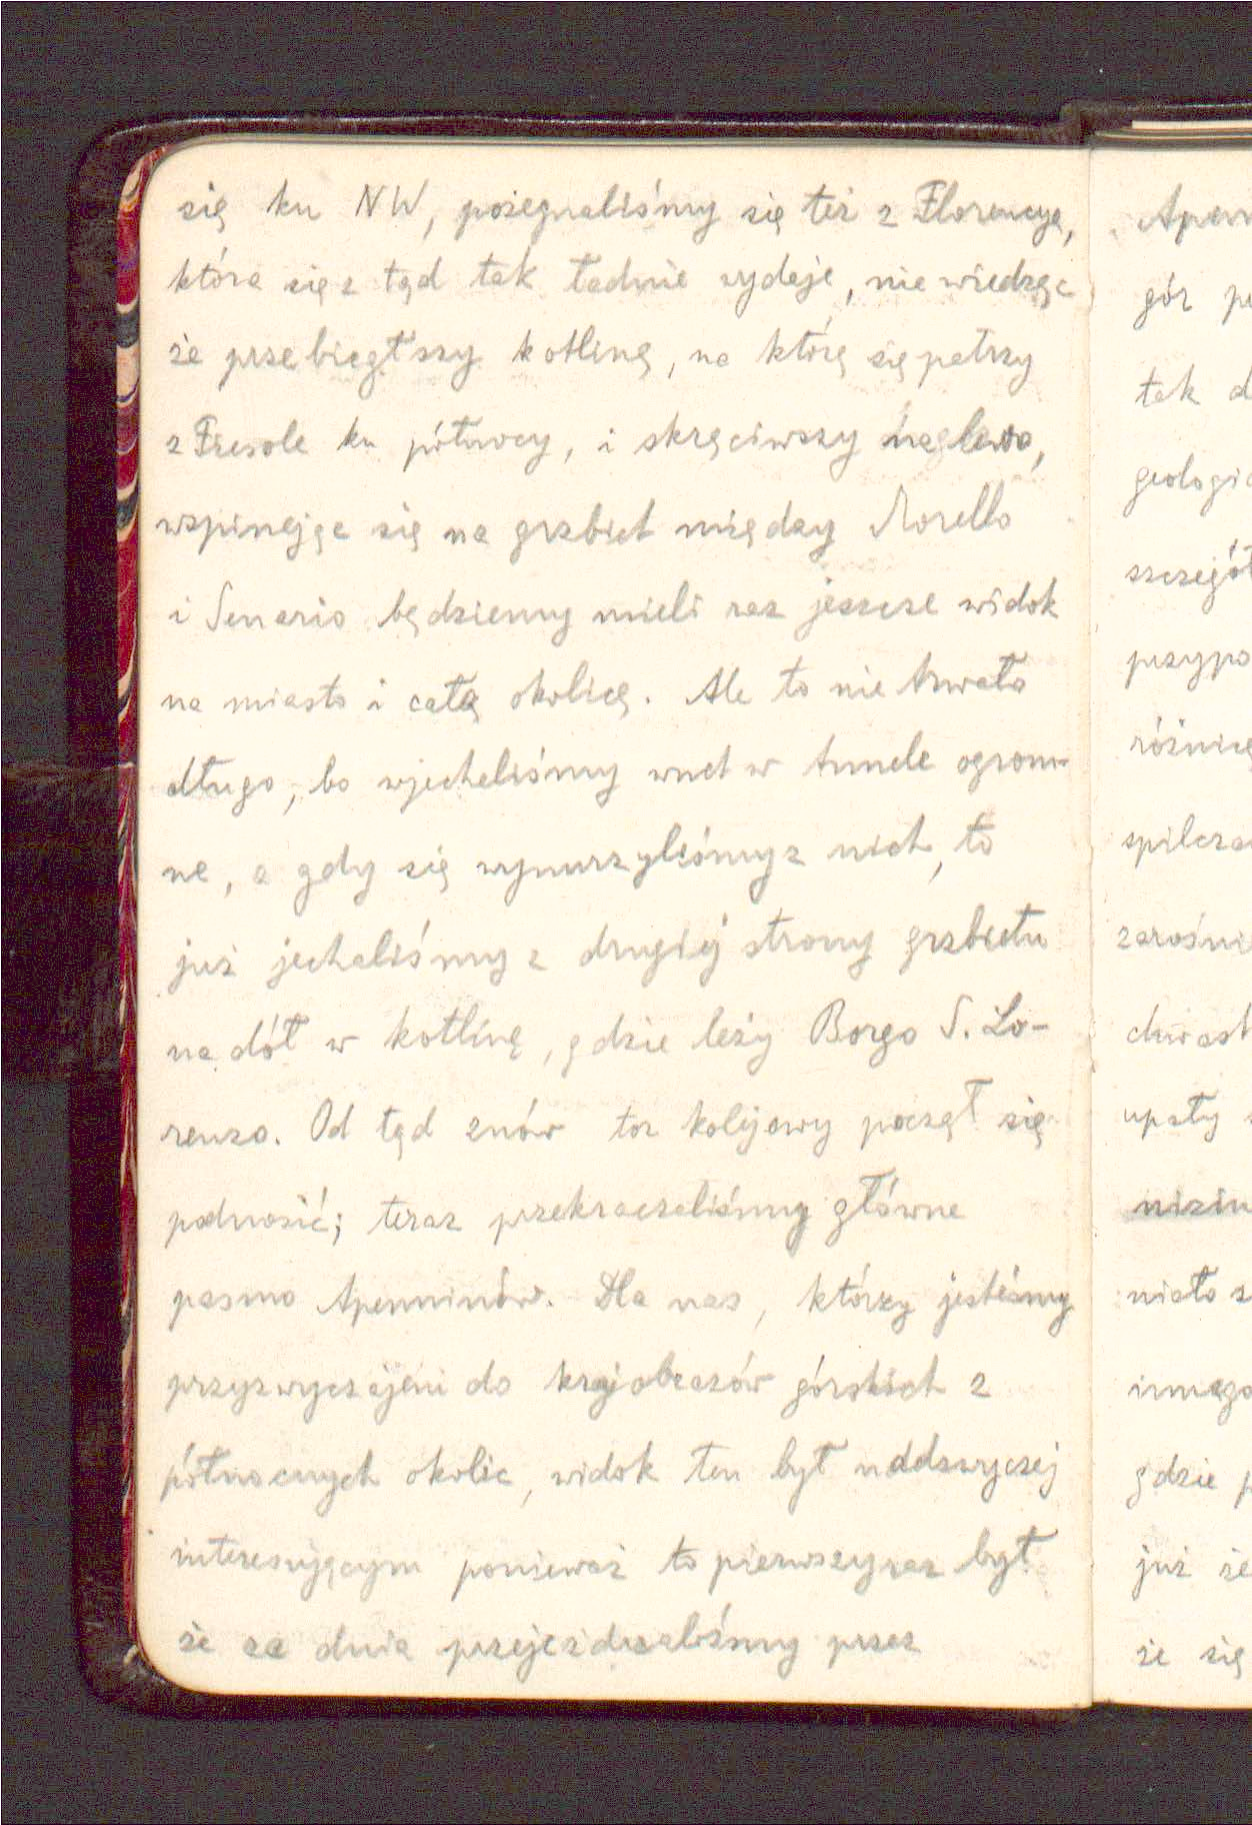 się ku NW, pożegnaliśmy się też z Florencyą,
która się z tąd tak ładnie wydaje, nie wiedząc
że przebiegłszy kotlinę, na którę się patrzy
z Fiesole ku północy, i skręciwszy na lewo,
wspinając się na grzbiet między Morello
i Senario będziemy mieli raz jeszcze widok
na miasto i całą okolicę. Ale to nie trwało
długo, bo wjechaliśmy wnet w tunele ogrom-
ne, a gdy się wynurzyliśmy z nich, to
już jechaliśmy z drugiéj strony grzbietu
na dół w kotlinę, gdzie leży Borgo S. Lo-
renzo. Od tąd znów tor kolejowy począł się
podnosić; teraz przekraczaliśmy główne
pasmo Apenninów. Dla nas, którzy jesteśmy
przyzwyczajeni do krajobrazów górskich z
północnych okolic, widok ten był naddzwyczaj
interesującym ponieważ to pierwszy raz był
że za dnia przejeżdżaliśmy przez
gór
tak
już
że się